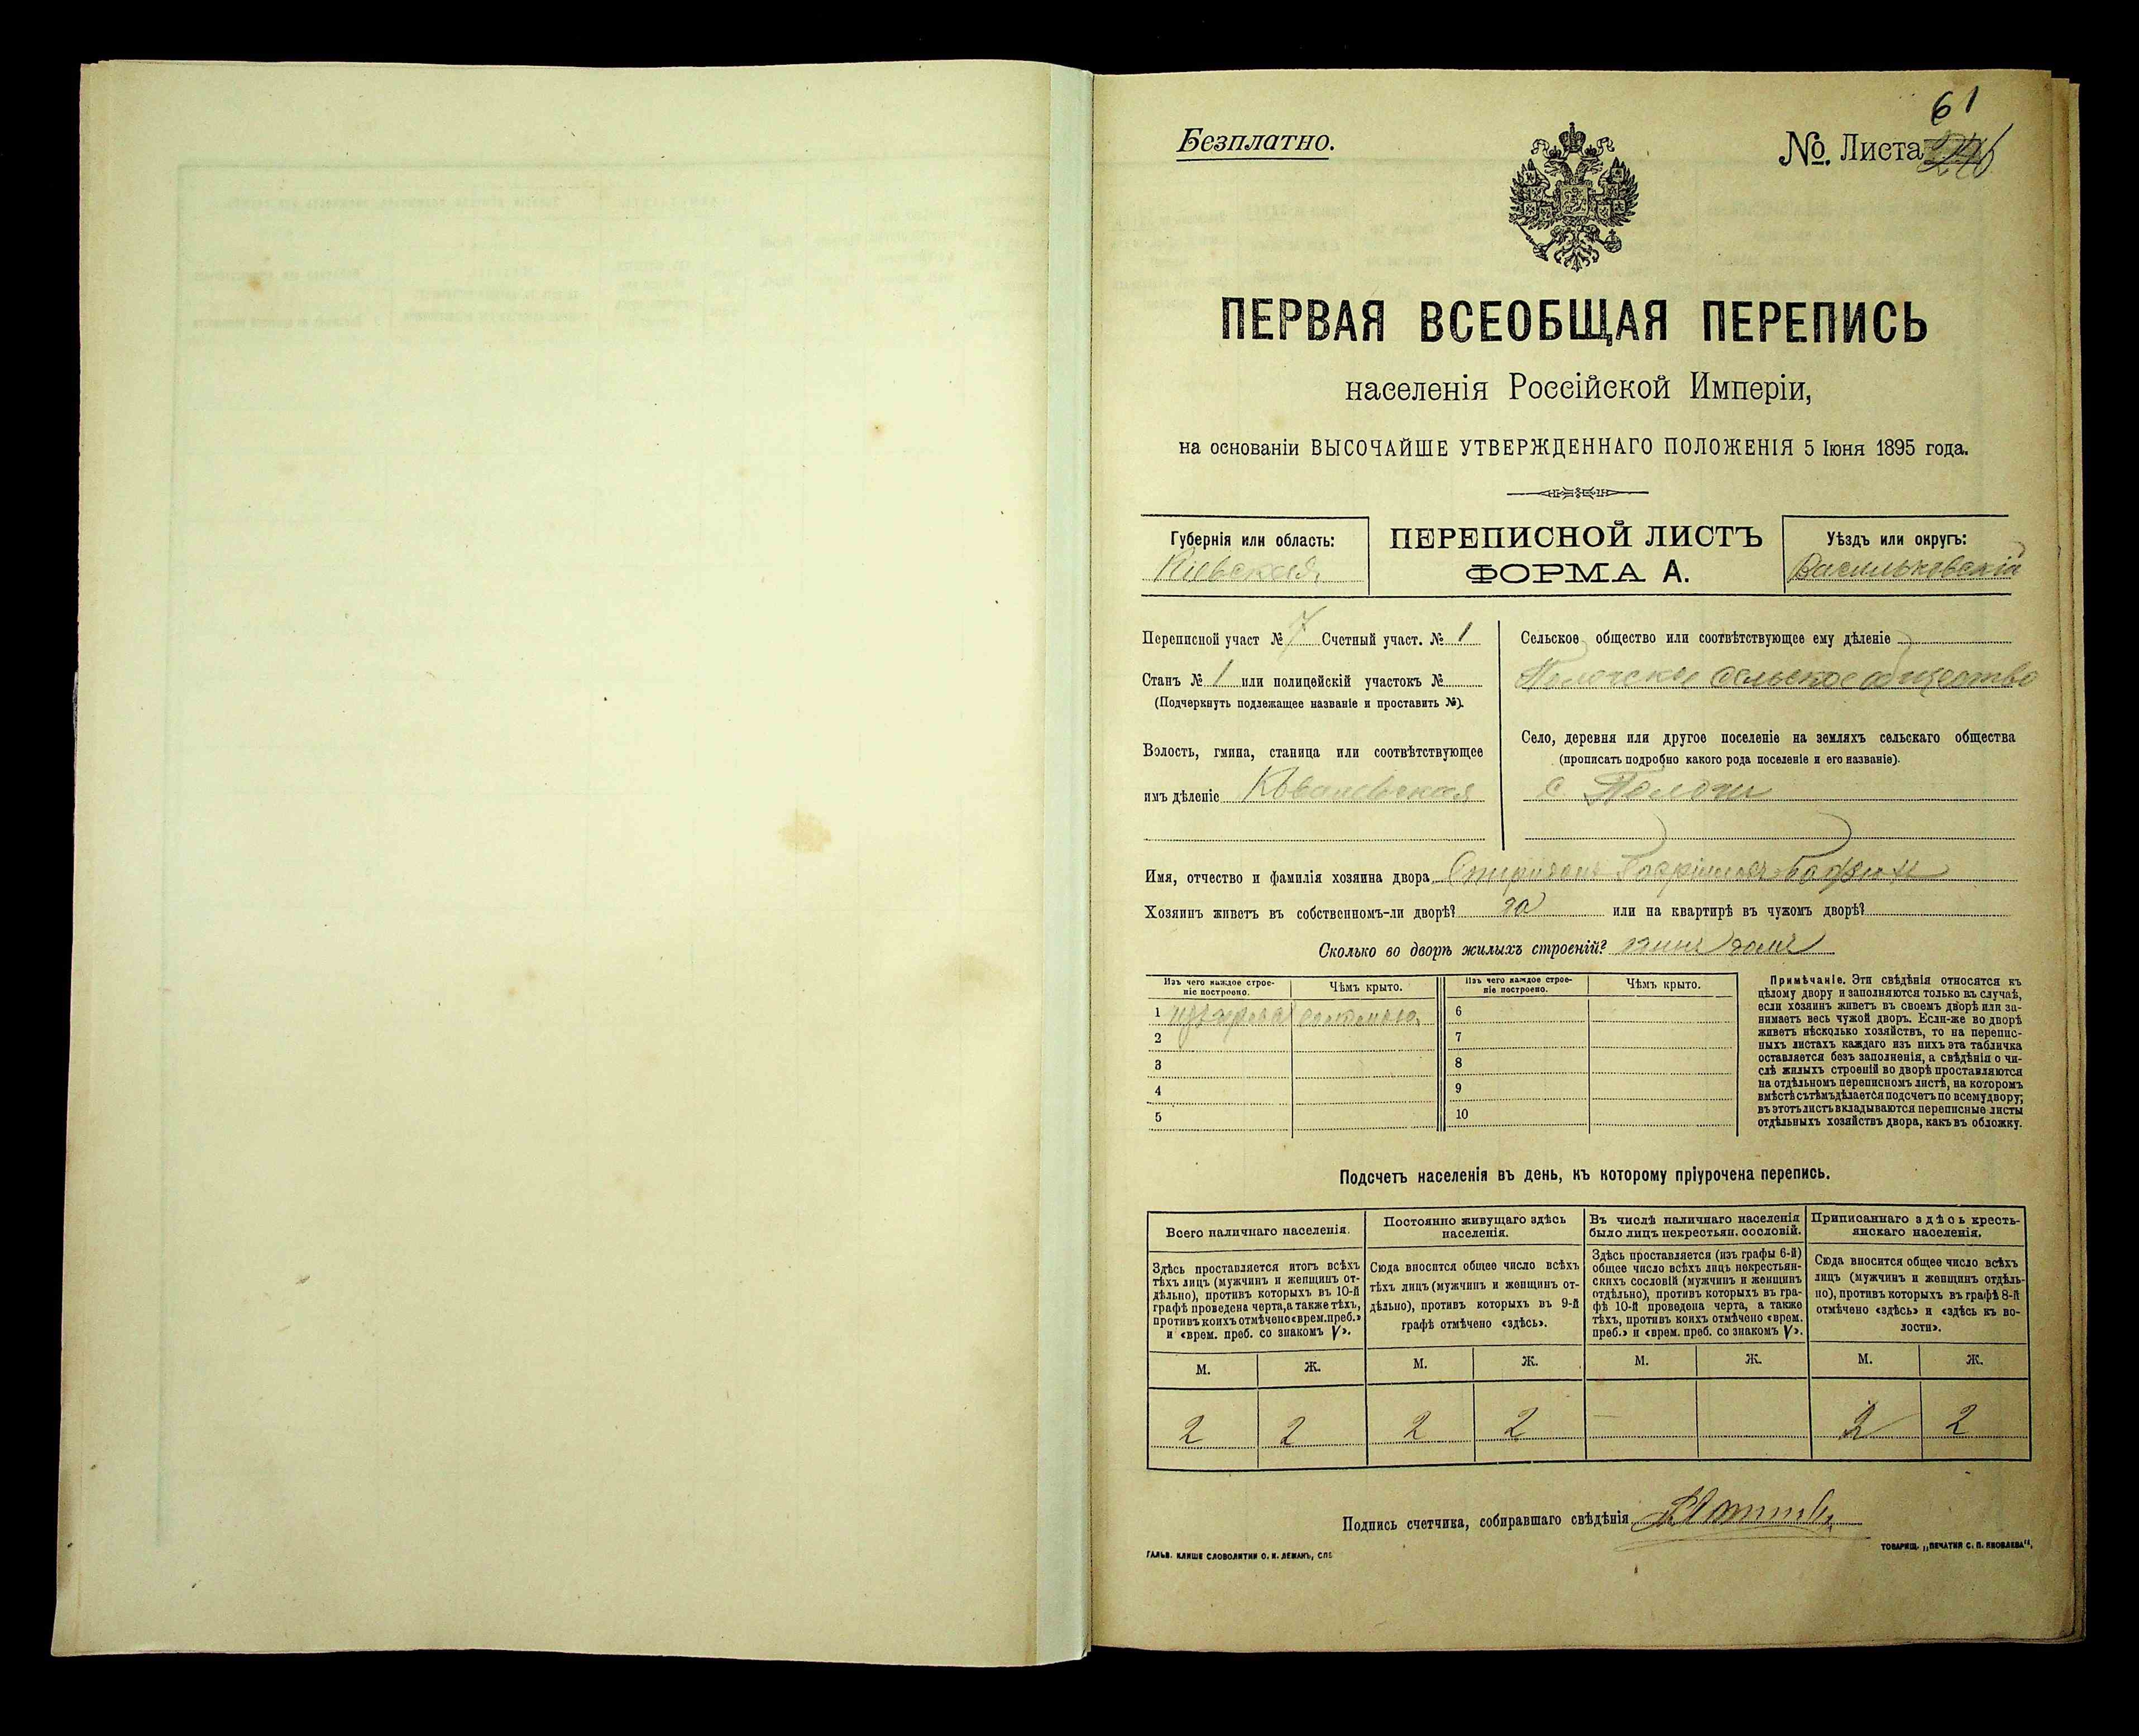 61
Безплатно.
№. Листа
ПЕРВАЯ ВСЕОБЩАЯ ПЕРЕПИСЬ
населенія Россійской Имперіи,
на основаніи ВЫСОЧАЙШЕ УТВЕРЖДЕННАГО ПОЛОЖЕНІЯ 5 Іюня 1895 года.
Губернія или область:
Кіевская
ПЕРЕПИСНОЙ ЛИСТЪ
ФОРМА А.
Уѣздъ или округъ:
Васильковскій
Переписной участ № 7 Счетный участ. № 1
Станъ № 1 или полицейскій участокъ №
(Подчеркнуть подлежащее названіе и проставить №).
Волость, гмина, станица или соотвѣтствующее
имъ дѣленіе Ковалевская
Сельское общество или соотвѣтствующее ему дѣленіе
сельское общество
Село, деревня или другое поселеніе на земляхъ сельскаго общества
(прописать подробно какого рода поселеніе и его названіе).
с. Пологи
Имя, отчество и фамилія хозяина двора
Хозяинъ живетъ въ собственномъ-ли дворѣ? да или на квартирѣ въ чужомъ дворѣ?
Сколько во дворѣ жилыхъ строеній? одинъ домъ
Изъ чего каждое строе-
ніе построено.
Чѣмъ крыто.
Изъ чего каждое строе-
ніе построено.
Чѣмъ крыто.
1 изъ дерева соломою 6
2 7
3 8
4 9
5 10
Примѣчаніе. Эти свѣдѣнія относятся къ
цѣлому двору и заполняются только въ случаѣ,
если хозяинъ живетъ въ своемъ дворѣ или за-
нимаетъ весь чужой дворъ. Если-же во дворѣ
живетъ нѣсколько хозяйствъ, то на перепис-
ныхъ листахъ каждаго изъ нихъ эта табличка
оставляется безъ заполненія, а свѣдѣнія о чи-
слѣ жилыхъ строеній во дворѣ проставляются
на отдѣльномъ переписномъ листѣ, на которомъ
вмѣстѣ съ тѣмъ дѣлается подсчетъ по всему двору;
въ этотъ листъ вкладываются переписные листы
отдѣльныхъ хозяйствъ двора, какъ въ обложку.
Подсчетъ населенія въ день, къ которому пріурочена перепись.
Всего наличнаго населенія.
Здѣсь проставляется итогъ всѣхъ
тѣхъ лицъ (мужчинъ и женщинъ от-
дѣльно), противъ которыхъ въ 10-й
графѣ проведена черта, а также тѣхъ,
противъ коихъ отмѣчено «врем. преб.»
и «врем. преб. со знакомъ V».
Постоянно живущаго здѣсь
населенія.
Сюда вносится общее число всѣхъ
тѣхъ лицъ (мужчинъ и женщинъ от-
дѣльно), противъ которыхъ въ 9-й
графѣ отмѣчено «здѣсь».
Въ числѣ наличнаго населенія
было лицъ некрестьян. сословій.
Здѣсь проставляется (изъ графы 6-й)
общее число всѣхъ лицъ некрестьян-
скихъ сословій (мужчинъ и женщинъ
отдѣльно), противъ которыхъ въ гра-
фѣ 10-й проведена черта, а также
тѣхъ, противъ коихъ отмѣчено «врем.
преб.» и «врем. преб. со знакомъ V».
Приписаннаго здѣсь кресть-
янскаго населенія.
Сюда вносится общее число всѣхъ
лицъ (мужчинъ и женщинъ отдѣль-
но), противъ которыхъ въ графѣ 8-й
отмѣчено «здѣсь» и «здѣсь въ во-
лости».
М. Ж. М. Ж. М. Ж. М. Ж.
2 2 2 2 — 2 2
Подпись счетчика, собиравшаго свѣдѣнія
ГАЛЬВ. КЛИШЕ СЛОВОЛИТНИ О. И. ЛЕМАНЪ, СПБ
ТОВАРИЩ. „ПЕЧАТНЯ С. П. ЯКОВЛЕВА“.